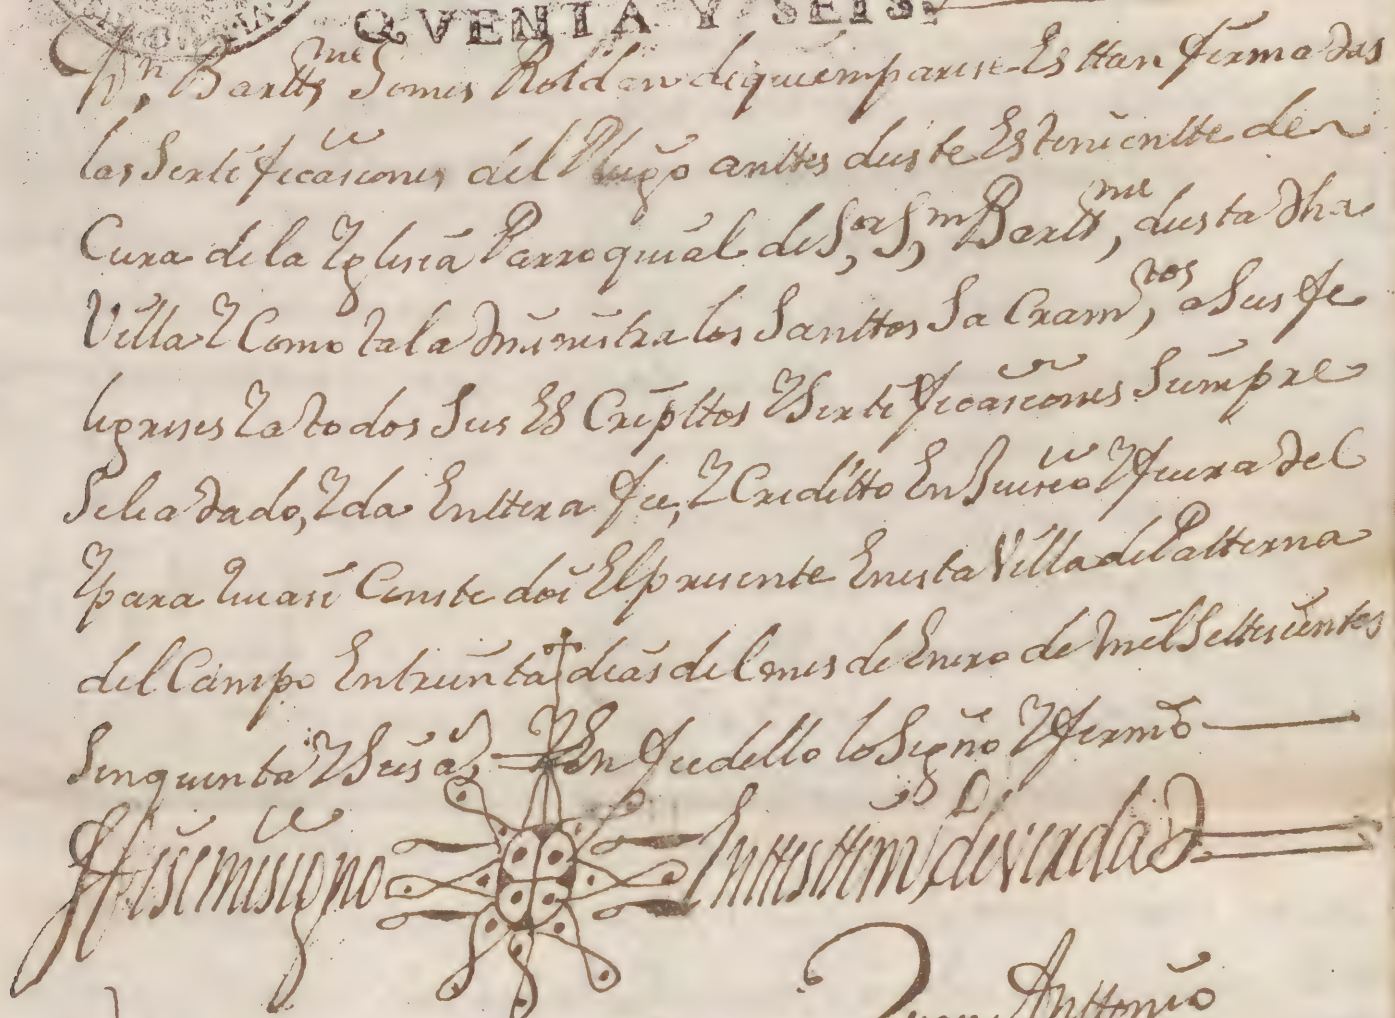 QVENTA Y SEIS.
Dn. Bartt.me Gomes Roldan de quiem parese Esttan firmadas
las Sertificasiones del Pliego anttes deste Es tenientte de
Cura de la Yglesia Parroquial de Sor. Sn. Bartt.me, desta dha
Villa Y Como tal adminístra los Santtos SaCram.tos, a Sus fe
ligreses Y a todos Sus EsCripttos Y Sertificasiones Siempre
Se lea dado, Y da Enttera fee, Y Creditto En Juisio Y fuera del
Y para que asi Conste doi El presente En esta Villa de Patterna
del Campo En treinta dias del mes de Enero de mil Settesientos
Sinquenta Y Seis a.s Y En fee dello lo Signo Y firmo
Hise mi signo En ttesttim.o de verdad
Juan Anttonio